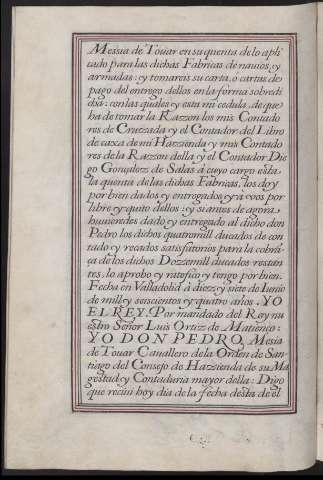 Messia de Touar en su quenta de lo apli
cado para las dichas Fabricas de nauios, y
armadas: y tomareis su carta, ó cartas de
pago del entrego dellos en la forma sobredi
cha: con las quales y esta mi cedula, de que
ha de tomar la Razon los mis Contado
res de Cruzada y el Contador del Libro
de caxa de mi Hazzienda y mis Contado
res de la Razzon della y el Contador Die
go Gonçalezz de Salas á cuyo cargo esta
la quenta de las dichas Fabricas, los doy
por bien dados y entregados y á vos por
libre y quito dellos: y si antes de agora
huuieredes dado y entregado al dicho don
Pedro los dichos quatromill ducados de con
tado y recados satisfatorios para la cobrã
ça de los dichos Dozzemill ducados restan
tes, lo aprobo y ratefico y tengo por bien.
Fecha en Valladolid á diezz y siete de Iunio
de mill y seiscientos y quatro años. YO
EL REY. Por mandado del Rey nu
estro Señor Luis Ortizz de Matienço:
YO DON PEDRO, Mesia
de Touar Cauallero de la Orden de San
tiago del Consejo de Hazzienda de su Ma
gestad y Contaduria mayor della: Digo
que reciui hoy dia de la fecha desta de el